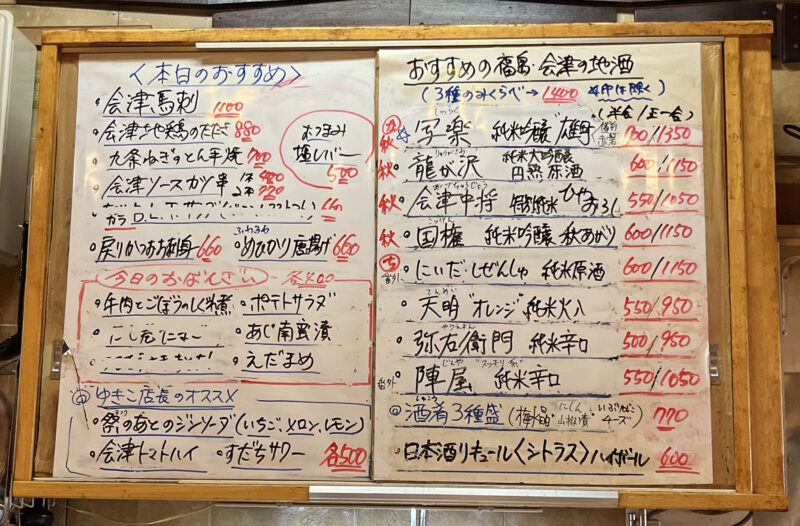 〈本日のおすすめ〉
・会津馬刺 1100
・会津地鶏のたたき 880
・九条ねぎすっとん平焼 700
・会津ソースカツ串 1本 420
2本 720
おつまみ
塩レバー
500
・戻りかつおお刺身 660
ふわふわ
・めひかり唐揚げ 660
今日のおばんざい 各400
・牛肉とごぼうのしぐれ煮
・ポテトサラダ
・あじ南蛮漬
・えだまめ
ゆきこ店長のオススメ
・祭のあとのジンソーダ(いちご、メロン、レモン)
・会津トマトハイ ・すだちサワー 各500
おすすめの福島・会津の地酒
(3種のみくらべ→1400 *印は除く)
秋 写楽 純米吟醸 雄町 700/1350
秋 龍が沢 純米大吟醸 円熟原酒 600/1150
秋 会津中将 特別純米 ひやおろし 550/1050
秋 国権 純米吟醸 秋あがり 600/1150
番外 にいだしぜんしゅ 純米原酒 600/1150
てんめい
天明 "オレンジ" 純米火入 550/950
やうえもん
弥右衛門 純米辛口 500/950
じんや "スッキリ"
番外 陣屋 純米辛口 550/1050
酒肴3種盛 770
・日本酒リキュール〈シトラス〉ハイボール 600